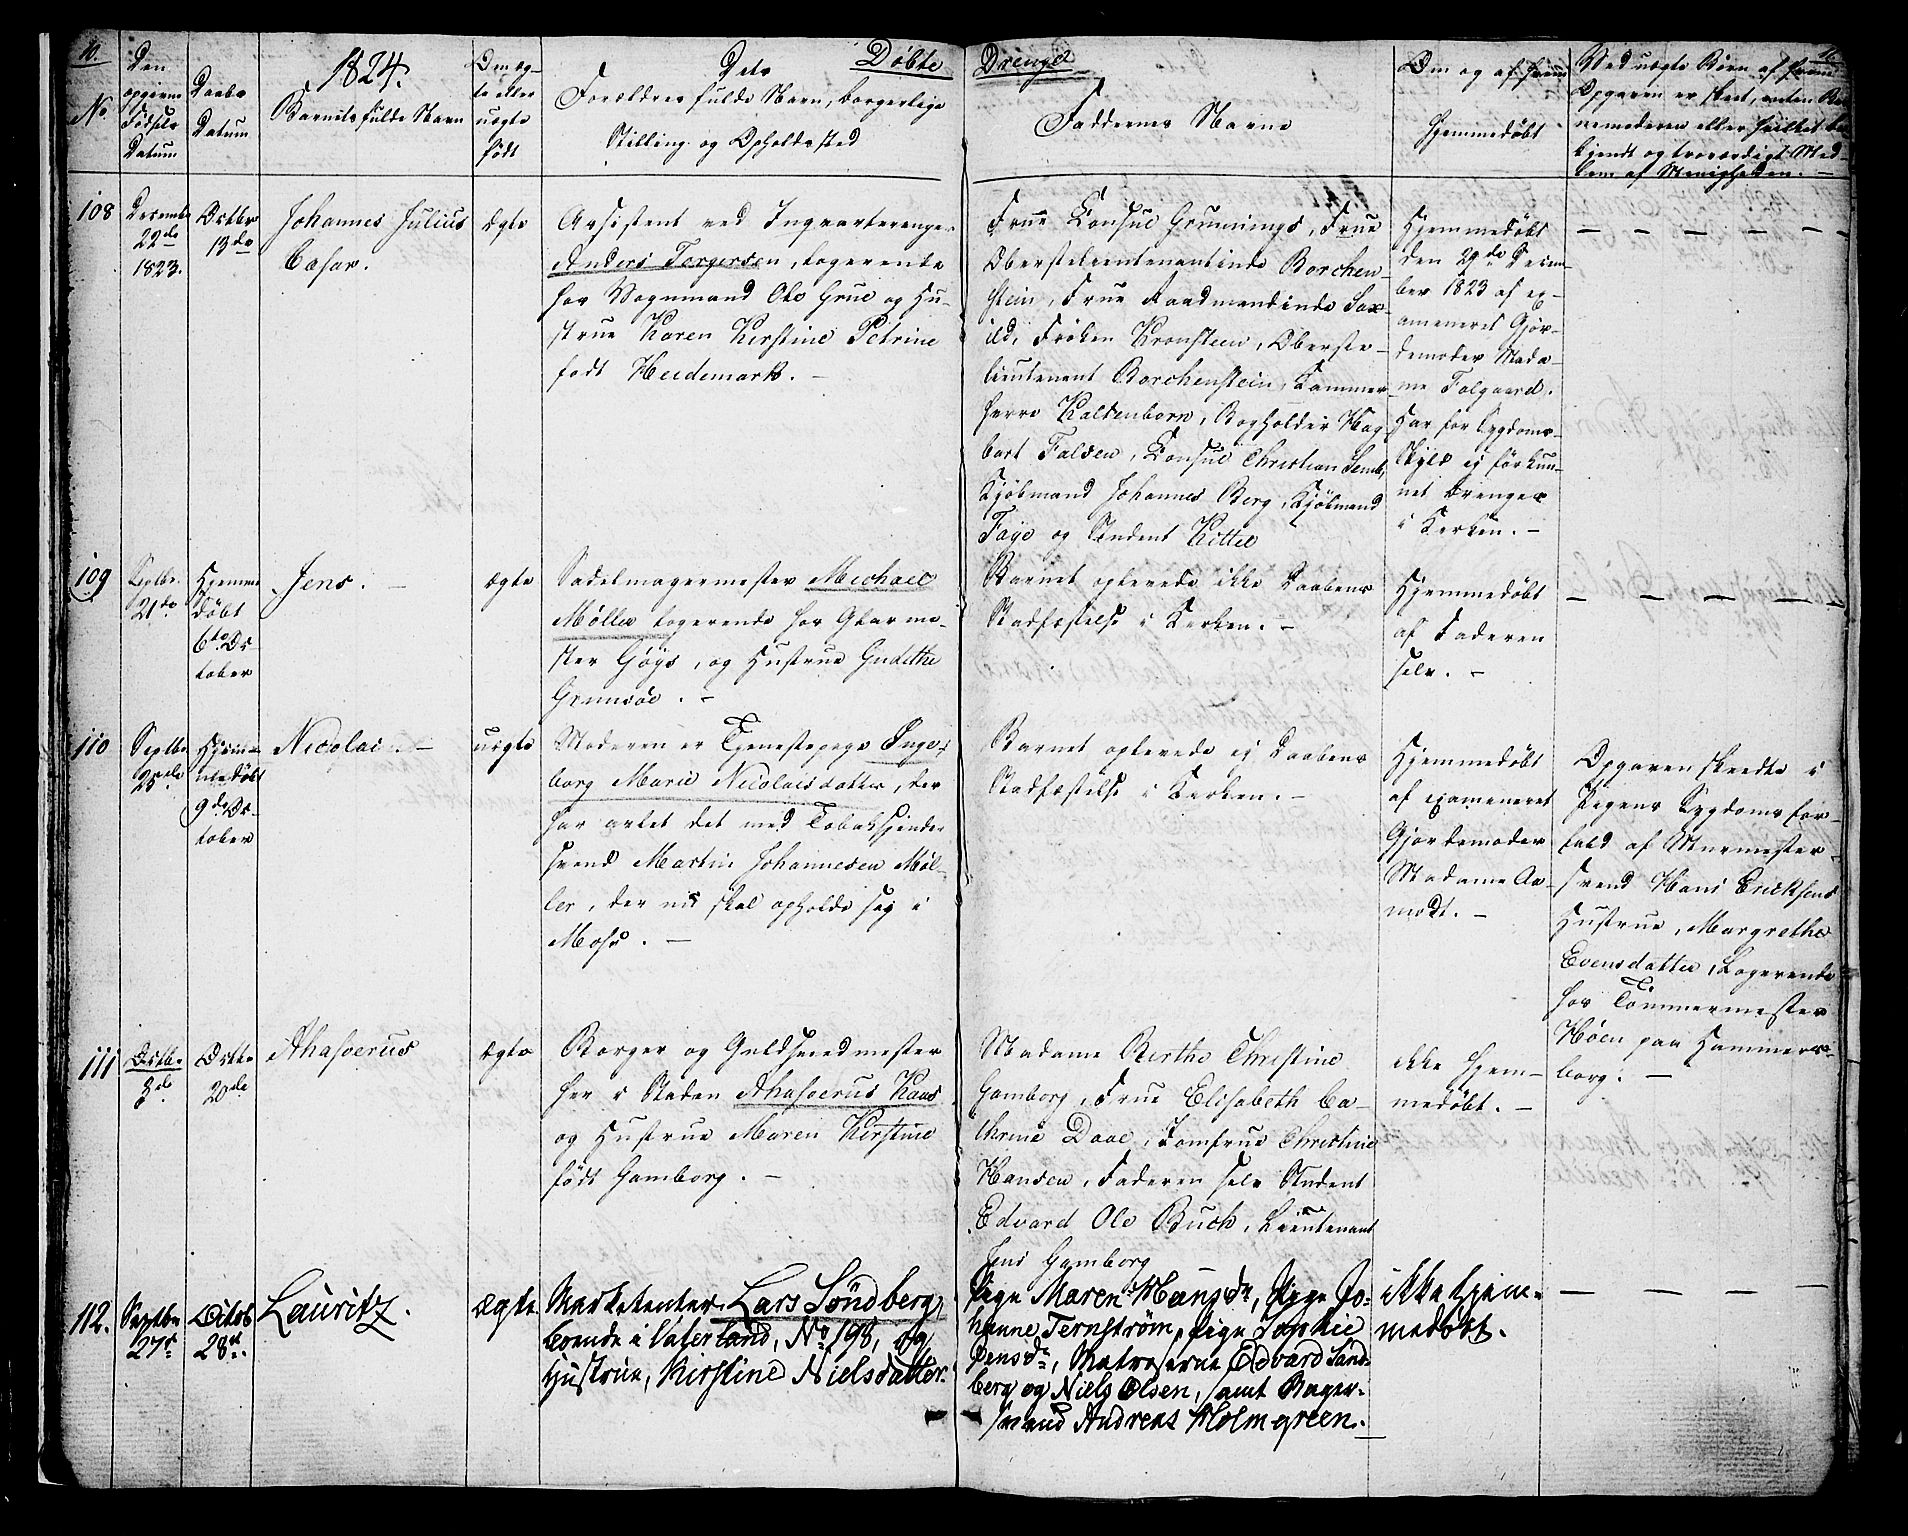 10.
1824.
Døbte Drenge
No
Den
opgivne
Fødsels
Datum
Daabs
Datum
Barnets fulde Navn
Om æg-
te eller
uægte
født
Dets
Forældres fulde Navn, borgerlige
Stilling og Opholdssted
Faddernes Navne
Om og af hvem
hjemmedøbt
Ved uægte Børn af hvem
Opgaven er skeet, enten Bar-
nemoderen eller hvilket be-
kjendt og troværdigt Med-
lem af Menigheden. —
108
Decembr
22de
1823.
Octbr
13de
Johannes Julius
Cæsar.
Ægte
Assistent ved Inqvarteringen
Anders Torgersen, logerende
hos Vognmand Ole Grue og Hu-
strue Karen Kirstine Petrine
født Hedemark. —
Frue Consul Grunnings, Frue
Oberstelieutenantinde Borchen-
stein, Frue Raadmandinde Sax-
ild, Frøken Kronsteen, Oberste-
lieutenant Borchenstein, Kammer-
herre Kaltenborn, Bogholder Hag-
bart Falsen, Consul Christian Semb,
Kjøbmand Johannes Berg, Kjøbmand
Faye og Student Kittel
Hjemmedøbt
den 29de Decem-
ber 1823 af ex-
amineret Gjor-
demoder Mada-
me Folgaard.
Har for Sygdoms-
skyld ej før kun-
net bringes
i Kirken. —
109
Septbr.
21de
Hjemme
døbt
6te Oc-
tober
Jens. —
ægte
Sadelmagermester Michael
Møller logerende hos Glarme-
ster Göys, og Hustrue Gudithe
Grimsøe. —
Barnet oplevede ikke Daabens
Stadfæstelse i Kirken. —
Hjemmedøbt
af Faderen
selv. —
110
Septbr.
25de
Hjem-
medøbt
9de Oc-
tober
Nicolai. —
uægte
Moderen er Tjenestepige Inge-
borg Marie Nicolaisdatter, der
har avlet det med Tobakspinder
svend Martin Johannesen Møl-
ler, der nu skal opholde sig i
Moss. —
Barnet oplevede ej Daabens
Stadfæstelse i Kirken. —
Hjemmedøbt
af examineret
Gjordemoder
Madame Aa-
modt. —
Opgaven skeedte i
Pigens Sygdoms for-
fald af Murmester-
svend Hans Ericksens
Hustrue, Margrethe
Evensdatter, logerende
hos Tömmermester
Höen paa Hammers-
borg. —
111
Octbr.
3de
Octbr
20de
Ahasverus
ægte
Borger og Guldsmedmester
her i Staden Ahasverus Kaas
og Hustrue Maren Kirstine
født Gamborg. —
Madame Birthe Christine
Gamborg, Frue Elisabeth Ca-
thrine Daae, Jomfrue Christine
Hansen, Faderen selv, Student
Edvard Ole Buch, Lieutenant
Jens Gamborg
ikke hjem-
medøbt. —
112.
Septbr
27de
Octob
28de.
Lauritz.
ægte.
Marketenter Lars Söndberg
boende i Vaterland, No 198, og
Hustrue, Kirstine Nielsdatter.
Pige Maren Hansdr, Pige Jo-
hanne Ternström, Pige Sophie
Jensdr, Matroserne Edvard Sand-
berg og Niels Olsen, samt Bager-
svend Andreas Holmgreen.
ikke hjem-
medøbt.